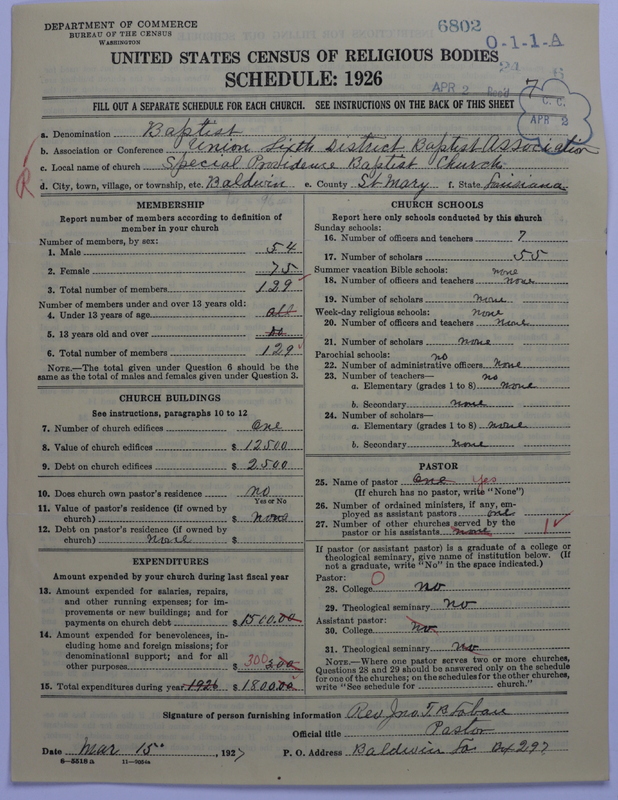 DEPARTMENT OF COMMERCE
BUREAU OF THE CENSUS
WASHINGTON
6802
O-1-1-A
UNITED STATES CENSUS OF RELIGIOUS BODIES
SCHEDULE: 1926
APR 2 Rec'd 7
FILL OUT A SEPARATE SCHEDULE FOR EACH CHURCH. SEE INSTRUCTIONS ON THE BACK OF THIS SHEET
C. C.
APR 2
a. Denomination Baptist
b. Association or Conference Union Sixth District Baptist Association
c. Local name of church Special Providence Baptist Church
R
d. City, town, village, or township, etc. Baldwin e. County St Mary f. State Louisiana
MEMBERSHIP
Report number of members according to definition of
member in your church
Number of members, by sex:
1. Male 54
2. Female 75
3. Total number of members 129
Number of members under and over 13 years old:
4. Under 13 years of age all
5. 13 years old and over
6. Total number of members 129
NOTE.—The total given under Question 6 should be the
same as the total of males and females given under Question 3.
CHURCH BUILDINGS
See instructions, paragraphs 10 to 12
7. Number of church edifices One
8. Value of church edifices $ 12500
9. Debt on church edifices $ 2500
10. Does church own pastor's residence no
Yes or No
11. Value of pastor's residence (if owned by
church) $ none
12. Debt on pastor's residence (if owned by
church) none $
EXPENDITURES
Amount expended by your church during last fiscal year
13. Amount expended for salaries, repairs,
and other running expenses; for im-
provements or new buildings; and for
payments on church debt $ 1500.00
14. Amount expended for benevolences, in-
cluding home and foreign missions; for
denominational support; and for all
other purposes $ 300
15. Total expenditures during year 1926 $ 1800.00
CHURCH SCHOOLS
Report here only schools conducted by this church
Sunday schools:
16. Number of officers and teachers 7
17. Number of scholars 55
Summer vacation Bible schools: none
18. Number of officers and teachers none
19. Number of scholars none
Week-day religious schools: none
20. Number of officers and teachers none
21. Number of scholars none
Parochial schools: no
22. Number of administrative officers none
23. Number of teachers— no
a. Elementary (grades 1 to 8) none
b. Secondary none
24. Number of scholars—
a. Elementary (grades 1 to 8) none
b. Secondary none
PASTOR
25. Name of pastor One yes
(If church has no pastor, write "None")
26. Number of ordained ministers, if any, em-
ployed as assistant pastors one
27. Number of other churches served by the
pastor or his assistants none 1
If pastor (or assistant pastor) is a graduate of a college or
theological seminary, give name of institution below. (If
not a graduate, write "No" in the space indicated.)
Pastor: O
28. College no
29. Theological seminary no
Assistant pastor:
30. College no
31. Theological seminary no
NOTE.—Where one pastor serves two or more churches,
Questions 28 and 29 should be answered only on the schedule
for one of the churches; on the schedules for the other churches,
write "See schedule for church."
Signature of person furnishing information Rev Jno. T. B
Official title Pastor
Date Mar 15 1927 P. O. Address Baldwin La Bx 297
6—5518 a 11—9054a